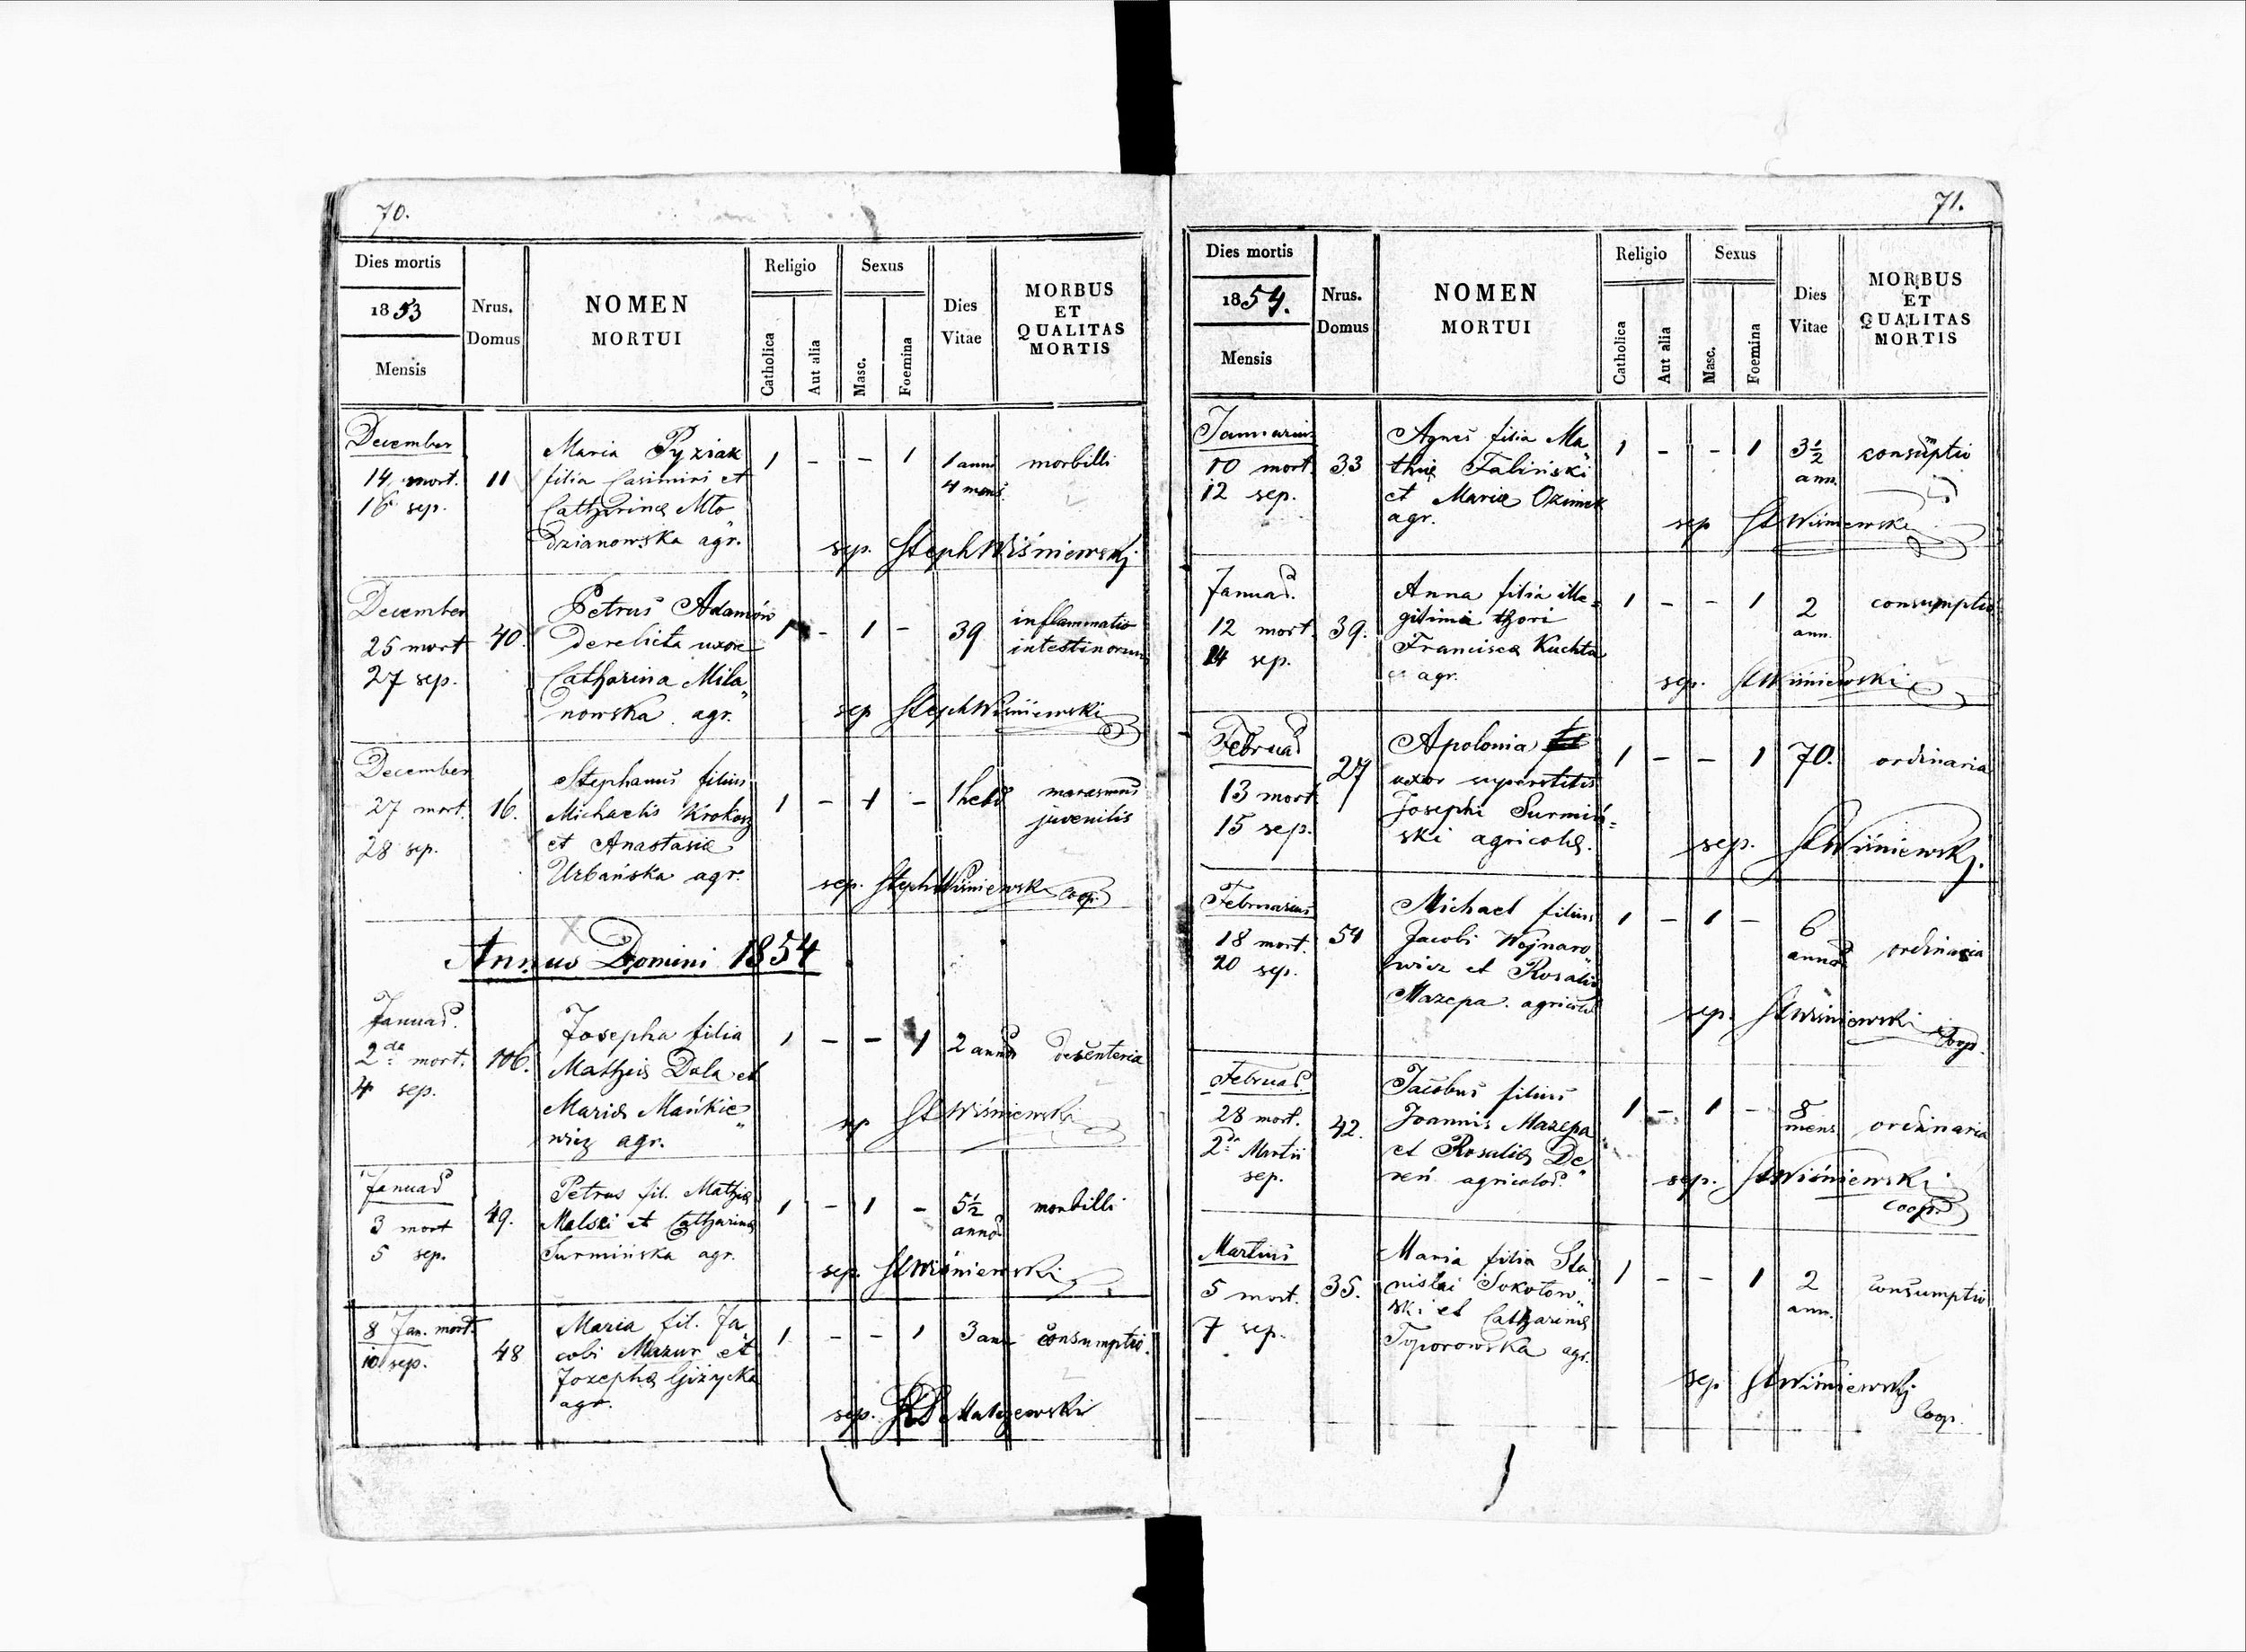 70.
Dies mortis
1853
Mensis
Nrus. Domus
NOMEN
MORTUI
Religio
Catholica
Aut alia
Sexus
Masc.
Foemina
Dies
Vitae
MORBUS
ET
QUALITAS
MORTIS
December
14 mort.
16 sep.
11
Maria Pyziak
filia Casimiri et
Catharinæ Mło„
dzianowska agr.
1 - - 1
1 anni
4 mens.
morbilli
sep. Steph Wiśniewski
December
25 mort
27 sep.
40.
Petrus Adamów
derelicta uxore
Catharina Mila„
nowska agr.
1 - 1 -
39
inflammatio
intestinorum
sep Steph Wiśniewski
December
27 mort.
28 sep.
16.
Stephanus filius
Michaelis Krokosz
et Anastasiæ
Urbańska agr.
1 - 1 -
1 hebd
marasmus
juvenilis
sep. Steph Wiśniewski Coop.
Annus Domini 1854
Januar.
2da mort.
4 sep.
106.
Josepha filia
Matheis Dala et
Mariæ Mańkie„
wicz agr.
1 - - 1
2 annor
desenteria
sep St Wiśniewski
Januar
3 mort
5 sep.
49.
Petrus fil. Mathiæ
Malski et Catharinæ
Surmińska agr.
1 - 1 -
5½
annor
morbilli
sep. St Wiśniewski
8 Jan. mort.
10 sep.
48
Maria fil. Ja„
cobi Mazur et
Jozephæ Giżycka
agr.
1 - - 1
3 ann
consumptio.
sep.
71.
Dies mortis
1854.
Mensis
Nrus.
Domus
NOMEN
MORTUI
Religio
Catholica
Aut alia
Sexus
Masc.
Foemina
Dies
Vitae
MORBUS
ET
QUALITAS
MORTIS
Januarius
10 mort.
12 sep.
33
Agnes filia Ma„
thiæ Faliński
et Mariæ Ozimek
agr.
1 - - 1
3½
ann.
consumptio
sep St Wiśniewski
Januar.
12 mort.
14 sep.
39.
Anna filia ille=
gitimi thori
Franciscæ Kuchta
agr.
1 - - 1
2
ann.
consumptio
sep. St Wiśniewski
Februar
13 mort.
15 sep.
27
Apolonia
uxor superstitis
Josephi Surmiń=
ski agricolæ.
1 - - 1
70.
ordinaria
sep. St Wiśniewski.
Februarius
18 mort.
20 sep.
54
Michael filius
Jacobi Wojnaro„
wicz et Rosaliæ
Mazepa. agricolæ
1 - 1 -
6
annor
ordinaria
sep. St Wiśniewski Coop.
Februar.
28 mort.
2da Martii
sep.
42.
Jacobus filius
Joannis Mazepa
et Rosaliæ De„
reń agricolar.
1 - 1 -
8
mens
ordinaria
sep. St Wiśniewski
Coop.
Martius
5 mort.
7 sep.
35.
Maria filia Sta„
nislai Sokołow„
ski et Catharinæ
Toporowska agr.
1 - - 1
2
ann.
consumptio
sep St Wiśniewski
Coop.